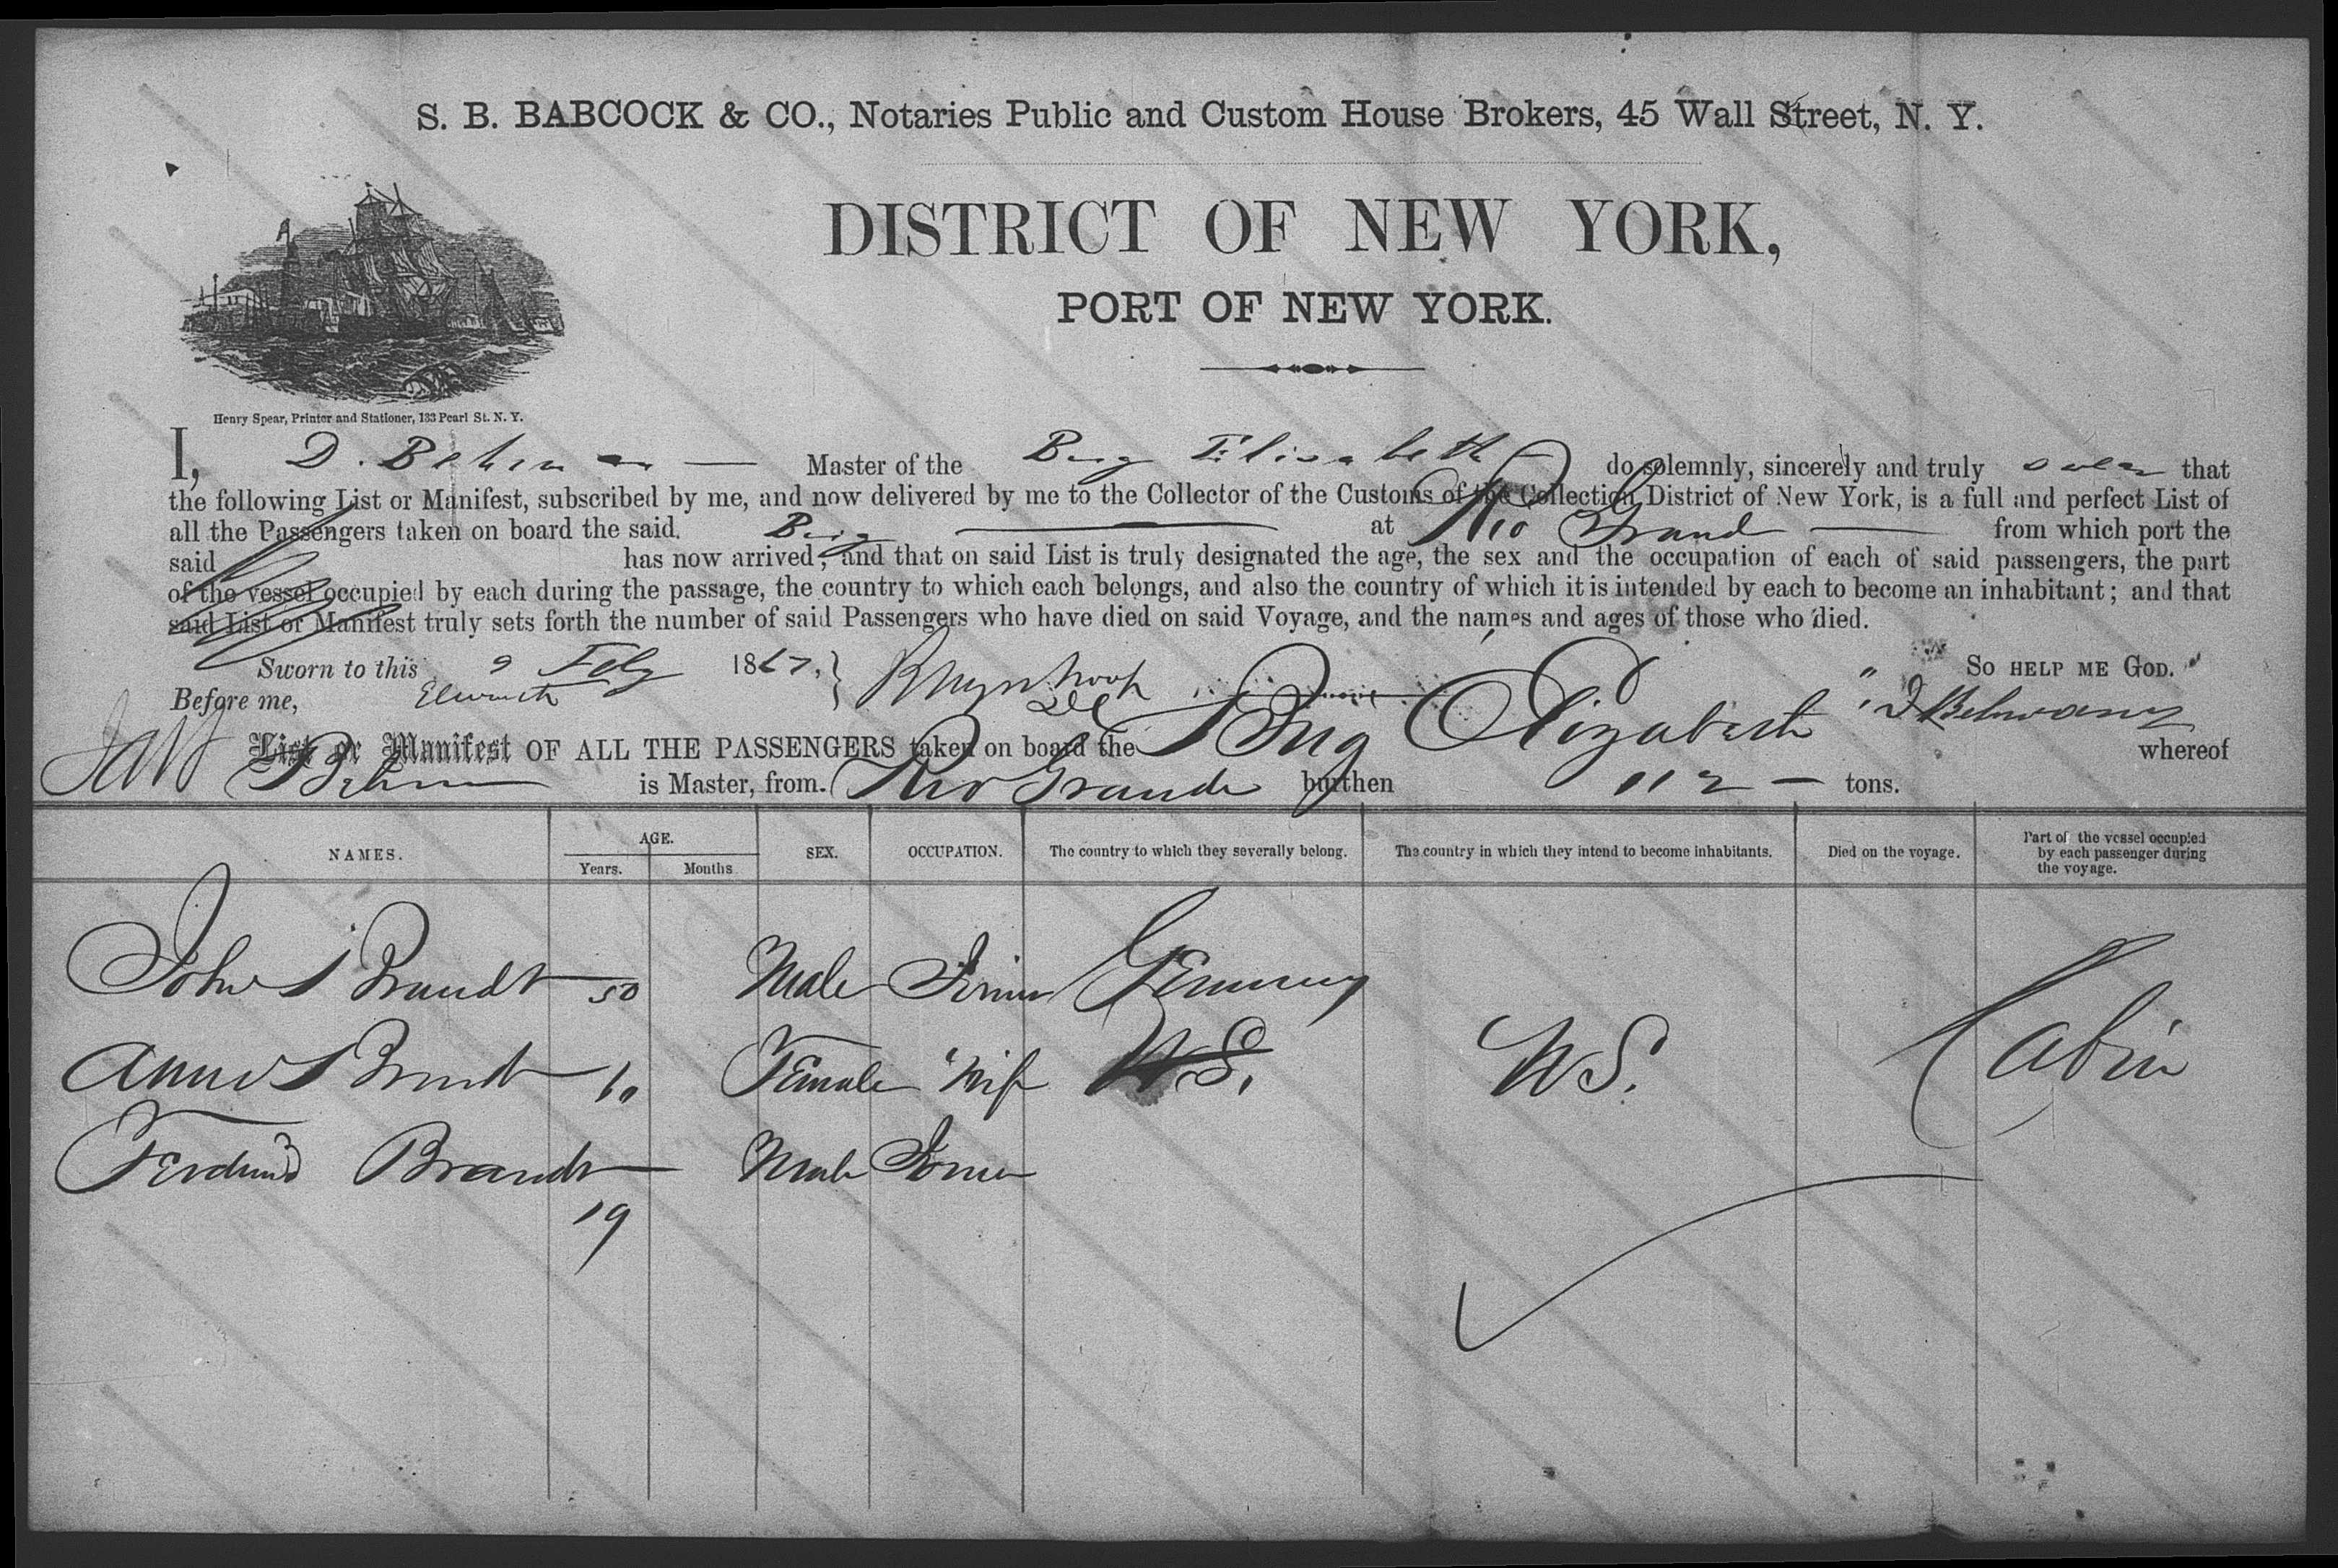 S. B. BABCOCK & CO., Notaries Public and Custom House Brokers, 45 Wall Street, N. Y.
DISTRICT OF NEW YORK,
PORT OF NEW YORK.
Henry Spear, Printer and Stationer, 133 Pearl St. N. Y.
I, D. Behrman Master of the Brig Elisabeth do solemnly, sincerely and truly swear that
the following List or Manifest, subscribed by me, and now delivered by me to the Collector of the Customs of the Collection District of New York, is a full and perfect List of
all the Passengers taken on board the said. Brig at Rio Grand from which port the
said has now arrived; and that on said List is truly designated the age, the sex and the occupation of each of said passengers, the part
of the vessel occupied by each during the passage, the country to which each belongs, and also the country of which it is intended by each to become an inhabitant; and that
said List or Manifest truly sets forth the number of said Passengers who have died on said Voyage, and the names and ages of those who died.
Sworn to this 9 Feby 1867. So HELP ME GOD.
Before me,
List or Manifest OF ALL THE PASSENGERS taken on board the Brig Elizabeth whereof
is Master, from. Rio Grande burthen 112 tons.
NAMES. AGE. SEX. OCCUPATION. The country to which they severally belong. The country in which they intend to become inhabitants. Died on the voyage. Part of the vessel occupied by each passenger during the voyage.
Years. Months
John Brandt 50 Male Germany
Brandt Female Wife U.S. U.S. Cabin
Ferdind Brandt 19 Male